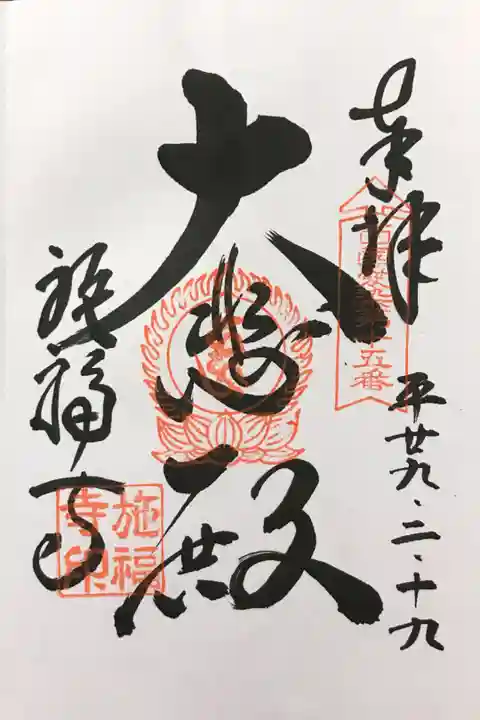 奉拝
平廿九・二・十九
五番
大悲殿
施福寺
施福
寺印